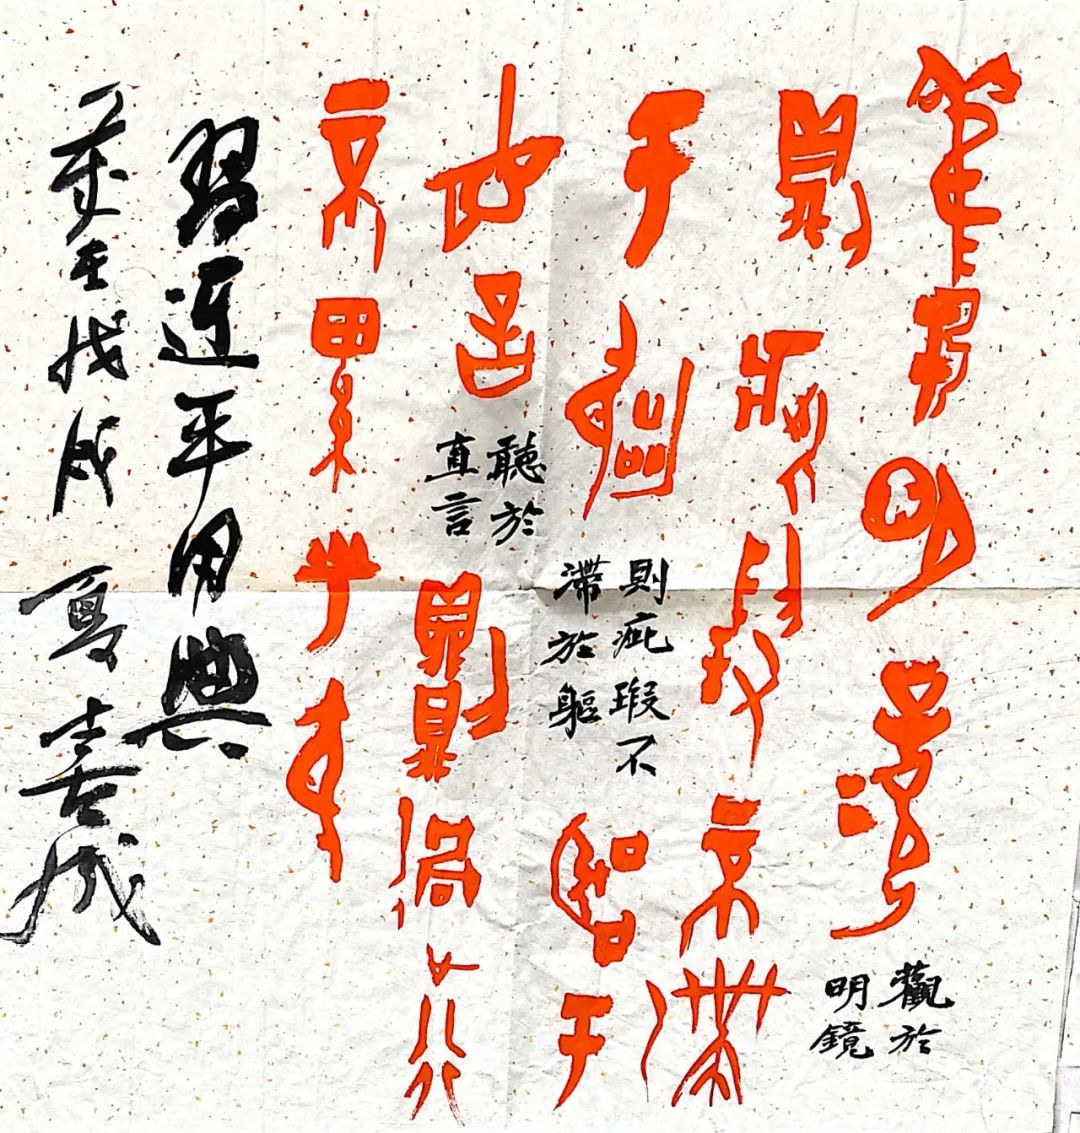 觀明鏡
觀於
明鏡
則疵瑕不滯
于軀
則疵瑕不
滯於軀
聽于
直言
聽於
直言
則過行
不累乎身
習近平用典
歲在戊戌夏